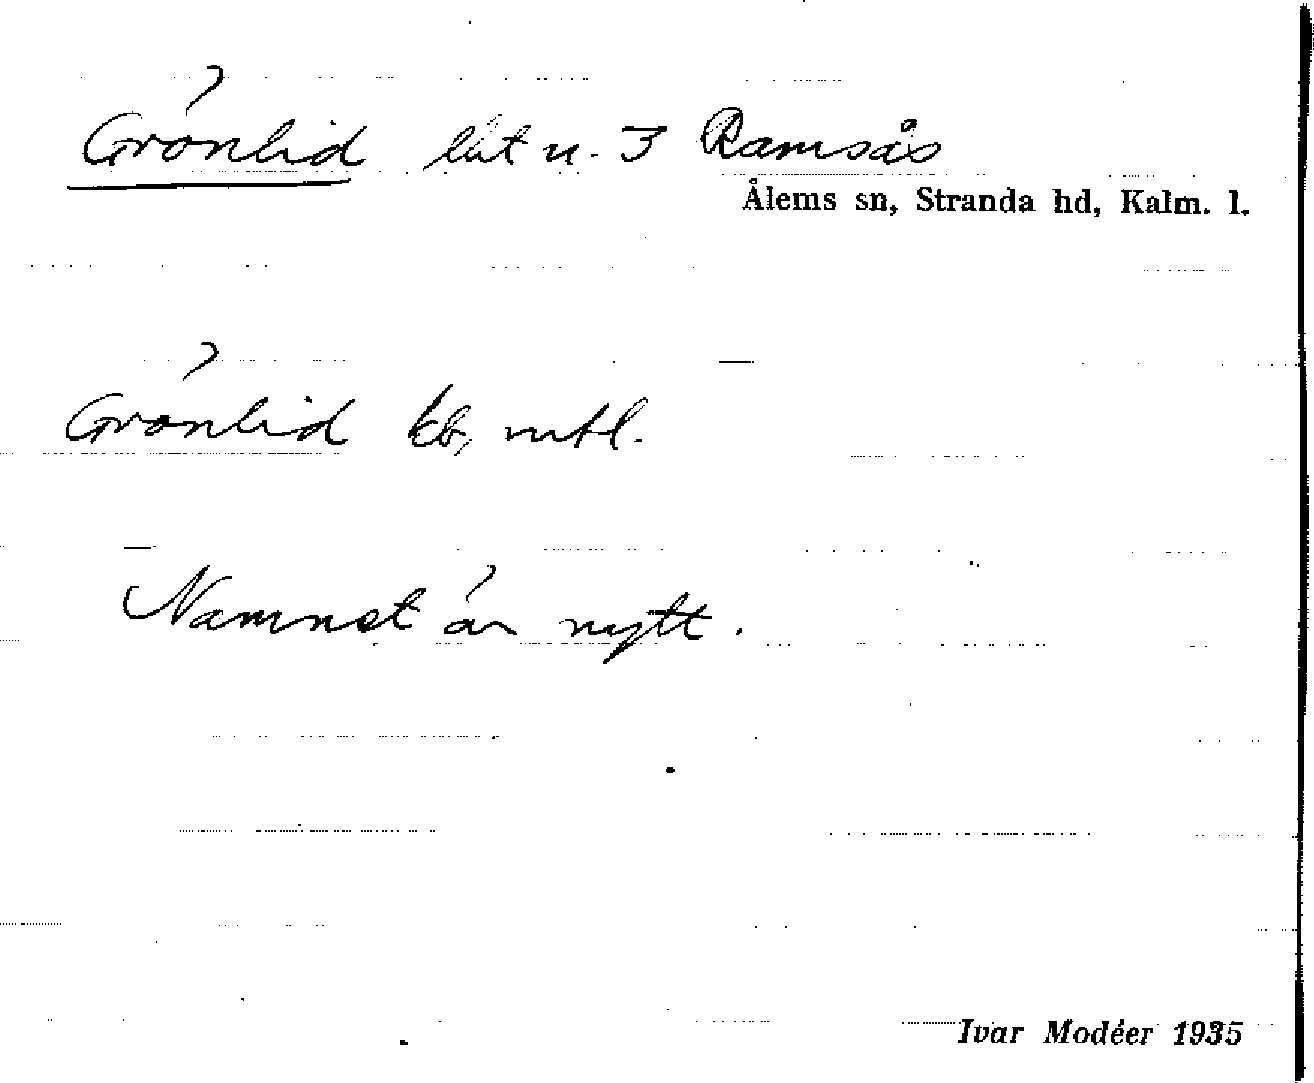 Grönlid lht u. 3 Ramsås
Ålems sn, Stranda hd, Kalm. l.
Grönlid kb, mtl.
Namnet är nytt.
Ivar Modéer 1935